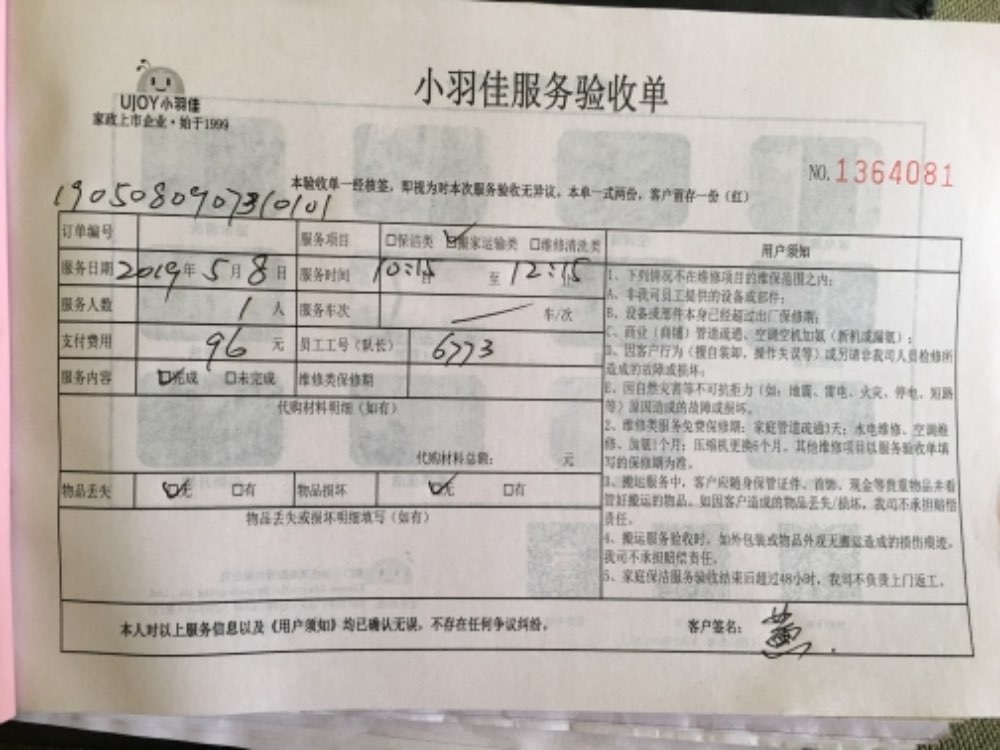 UJOY小羽佳
家政上市企业·始于1999
小羽佳服务验收单
NO.1364081
本验收单一经核签，即视为对本次服务验收无异议，本单一式两份，客户留存一份（红）
190508090731010​1
订单编号 服务项目 □保洁类 ☑搬家运输类 □维修清洗类
服务日期 2019年5月8日 服务时间 10:15 至 12:15
服务人数 1 人 服务车次 车/次
支付费用 96 元 员工工号（队长） 6773
服务内容 ☑完成 □未完成 维修类保修期
代购材料明细（如有）
代购材料总额： 元
物品丢失 ☑无 □有 物品损坏 ☑无 □有
物品丢失或损坏明细填写（如有）
用户须知
1、下列情况不在维修项目的维保范围之内：
A、非我司员工提供的设备或部件；
B、设备或部件本身已经超过出厂保修期；
C、商业（商铺）管道疏通、空调空机加氨（新机或漏氨）；
D、因客户行为（擅自装卸，操作失误等）或另请非我司人员检修所
造成的故障或损坏。
E、因自然灾害等不可抗拒力（如：地震、雷电、火灾、停电、短路
等）原因造成的故障或损坏。
2、维修类服务免费保修期：家庭管道疏通3天；水电维修、空调维
修、加氨1个月；压缩机更换6个月。其他维修项目以服务验收单填
写的保修期为准。
3、搬运服务中，客户应随身保管证件、首饰、现金等贵重物品并看
管好搬运的物品。如因客户造成的物品丢失/损坏，我司不承担赔偿
责任。
4、搬运服务验收时，如外包装或物品外观无搬运造成的损伤痕迹，
我司不承担赔偿责任。
5、家庭保洁服务验收结束后超过48小时，我司不负责上门返工。
本人对以上服务信息以及《用户须知》均已确认无误，不存在任何争议纠纷。 客户签名： 黄